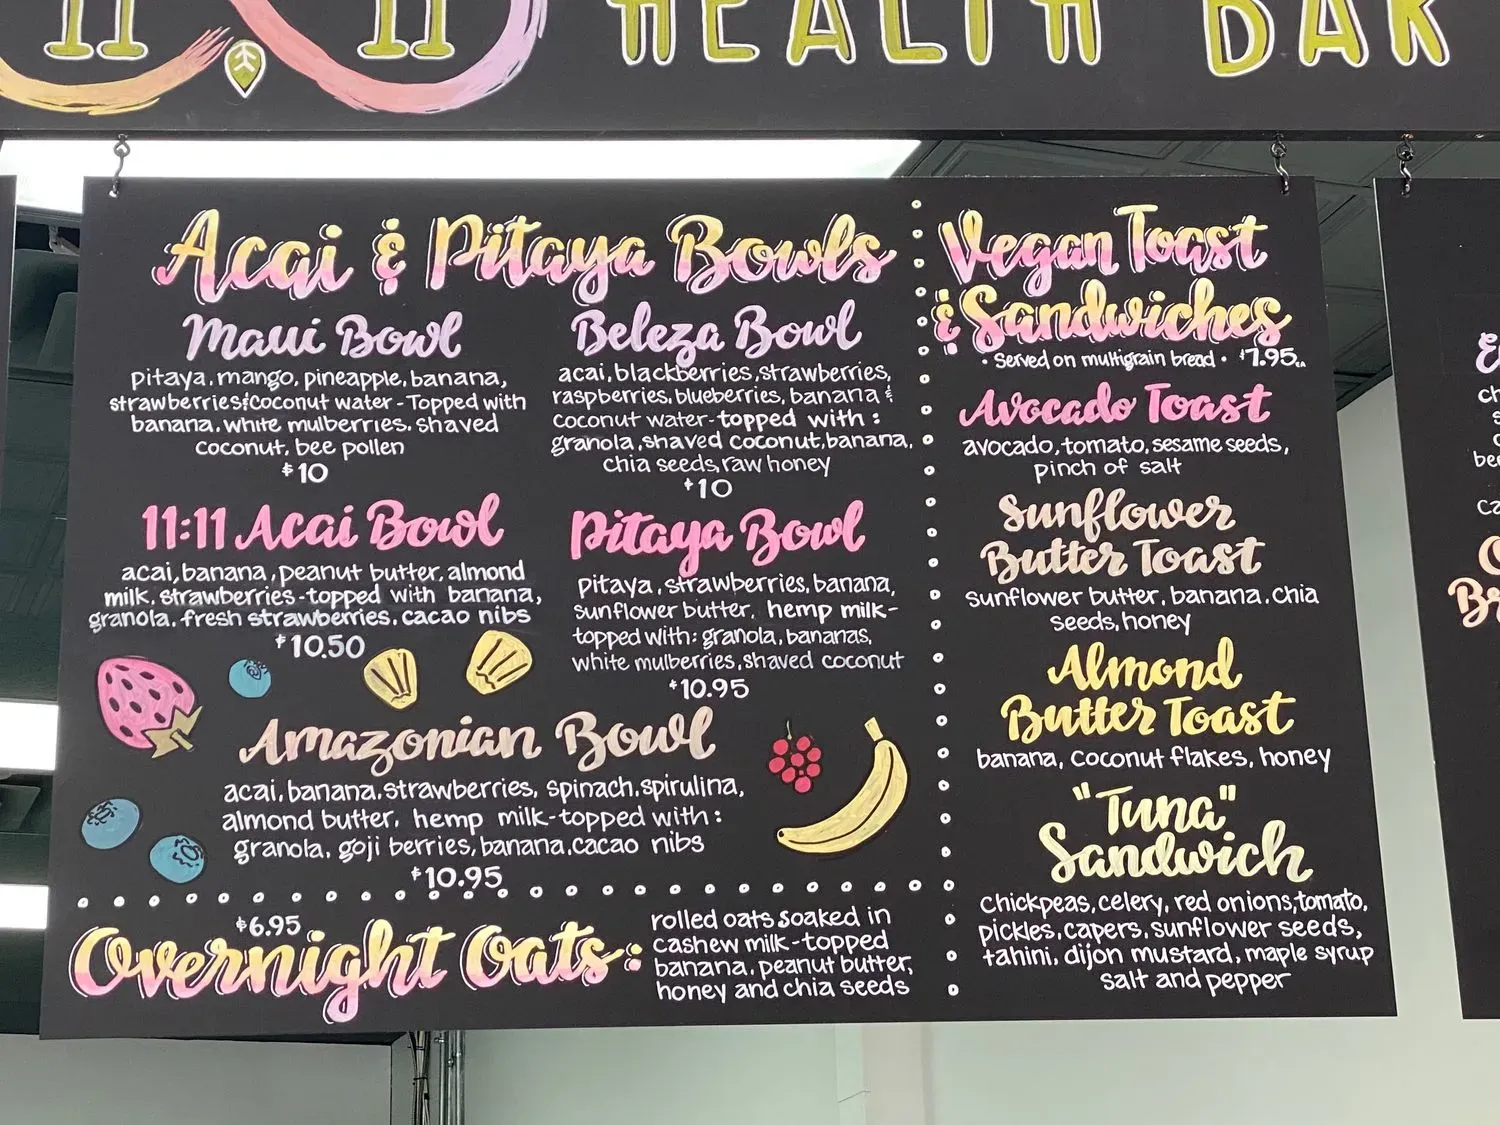 11 11 HEALTH BAR
Acai & Pitaya Bowls
Maui Bowl
pitaya, mango, pineapple, banana,
strawberries & coconut water - Topped with
banana, white mulberries, shaved
coconut, bee pollen
$10
Beleza Bowl
acai, blackberries, strawberries,
raspberries, blueberries, banana &
coconut water - topped with :
granola, shaved coconut, banana,
chia seeds, raw honey
$10
11:11 Acai Bowl
acai, banana, peanut butter, almond
milk, strawberries - topped with banana,
granola, fresh strawberries, cacao nibs
$10.50
Pitaya Bowl
pitaya, strawberries, banana,
sunflower butter, hemp milk -
topped with: granola, bananas,
white mulberries, shaved coconut
$10.95
Amazonian Bowl
acai, banana, strawberries, spinach, spirulina,
almond butter, hemp milk - topped with :
granola, goji berries, banana, cacao nibs
$10.95
$6.95
Overnight Oats:
rolled oats soaked in
cashew milk - topped
banana, peanut butter,
honey and chia seeds
Vegan Toast
& Sandwiches
• Served on multigrain bread • $7.95 ea
Avocado Toast
avocado, tomato, sesame seeds,
pinch of salt
Sunflower
Butter Toast
sunflower butter, banana, chia
seeds, honey
Almond
Butter Toast
banana, coconut flakes, honey
"Tuna"
Sandwich
chickpeas, celery, red onions, tomato,
pickles, capers, sunflower seeds,
tahini, dijon mustard, maple syrup
salt and pepper